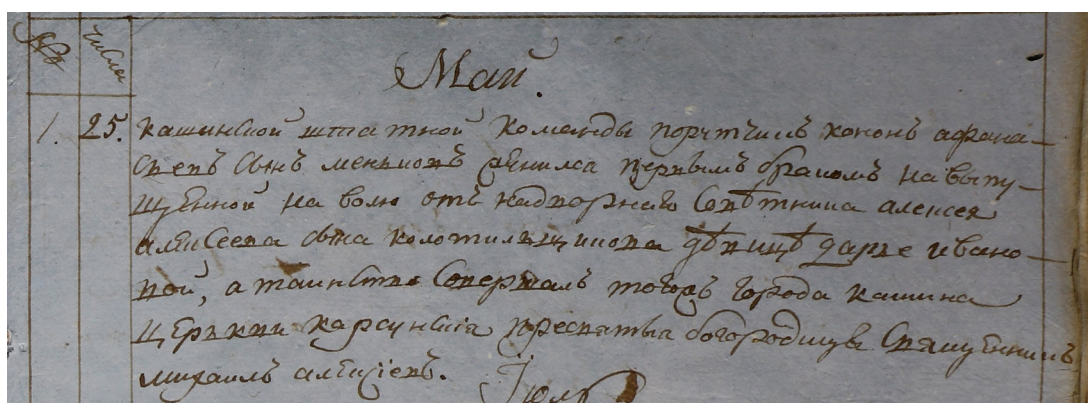 № числа
Май.
1. 25. кашинской штатной команды порутчикъ кононъ афана–
сьевъ сынъ меншовъ женился первымъ бракомъ на выпу–
щенной на волю отъ надворнаго совѣтника алексея
алексеева сына колотильщикова дѣвицѣ дарье ивано–
вой, а таинство совершалъ тогожъ города кашина
церькви карсунскія пресвятыя богородицы священникъ
михаилъ алексіевъ.